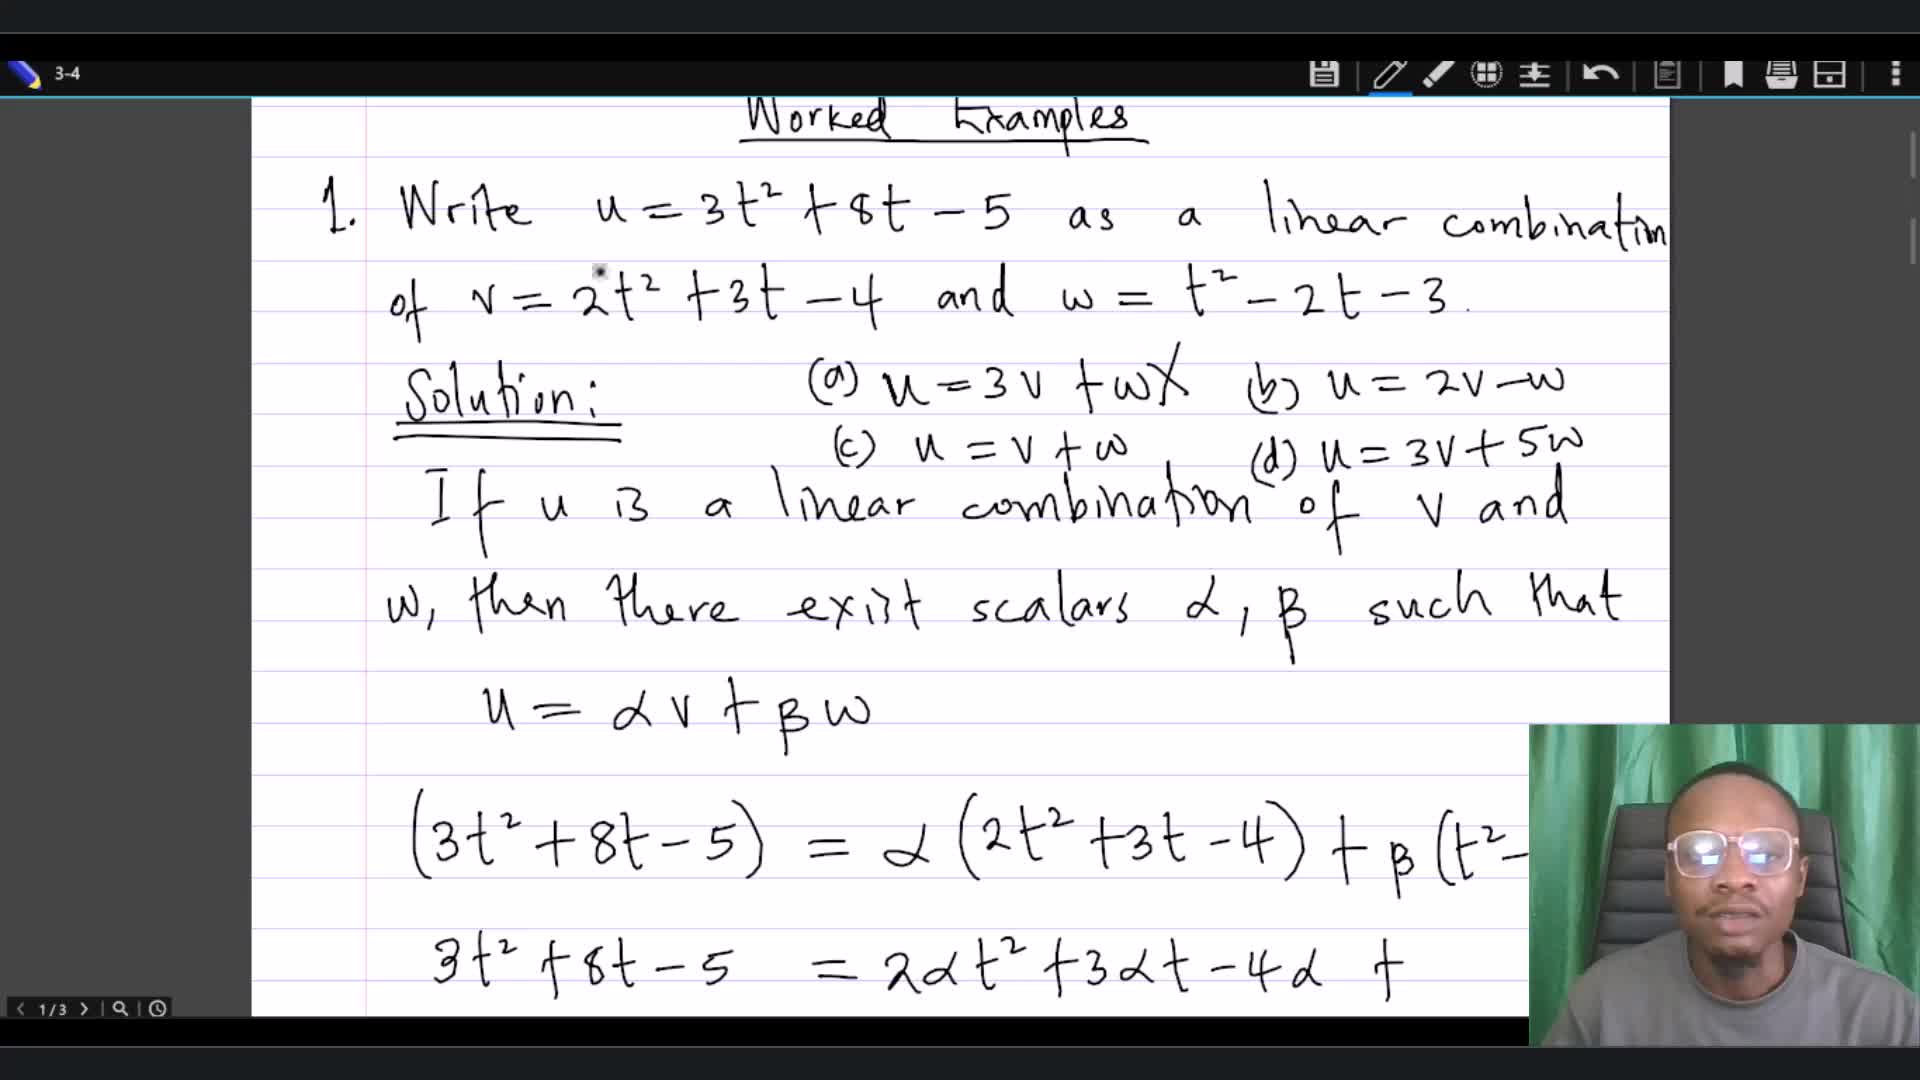 3-4
Worked Examples
1. Write u = 3t² + 8t - 5 as a linear combination
of v = 2t² + 3t - 4 and w = t² - 2t - 3.
Solution: (a) u = 3v + w X (b) u = 2v - w
(c) u = v + w (d) u = 3v + 5w
If u is a linear combination of v and
w, then there exist scalars α, β such that
u = αv + βw
(3t² + 8t - 5) = α(2t² + 3t - 4) + β(t² -
3t² + 8t - 5 = 2αt² + 3αt - 4α +
1/3